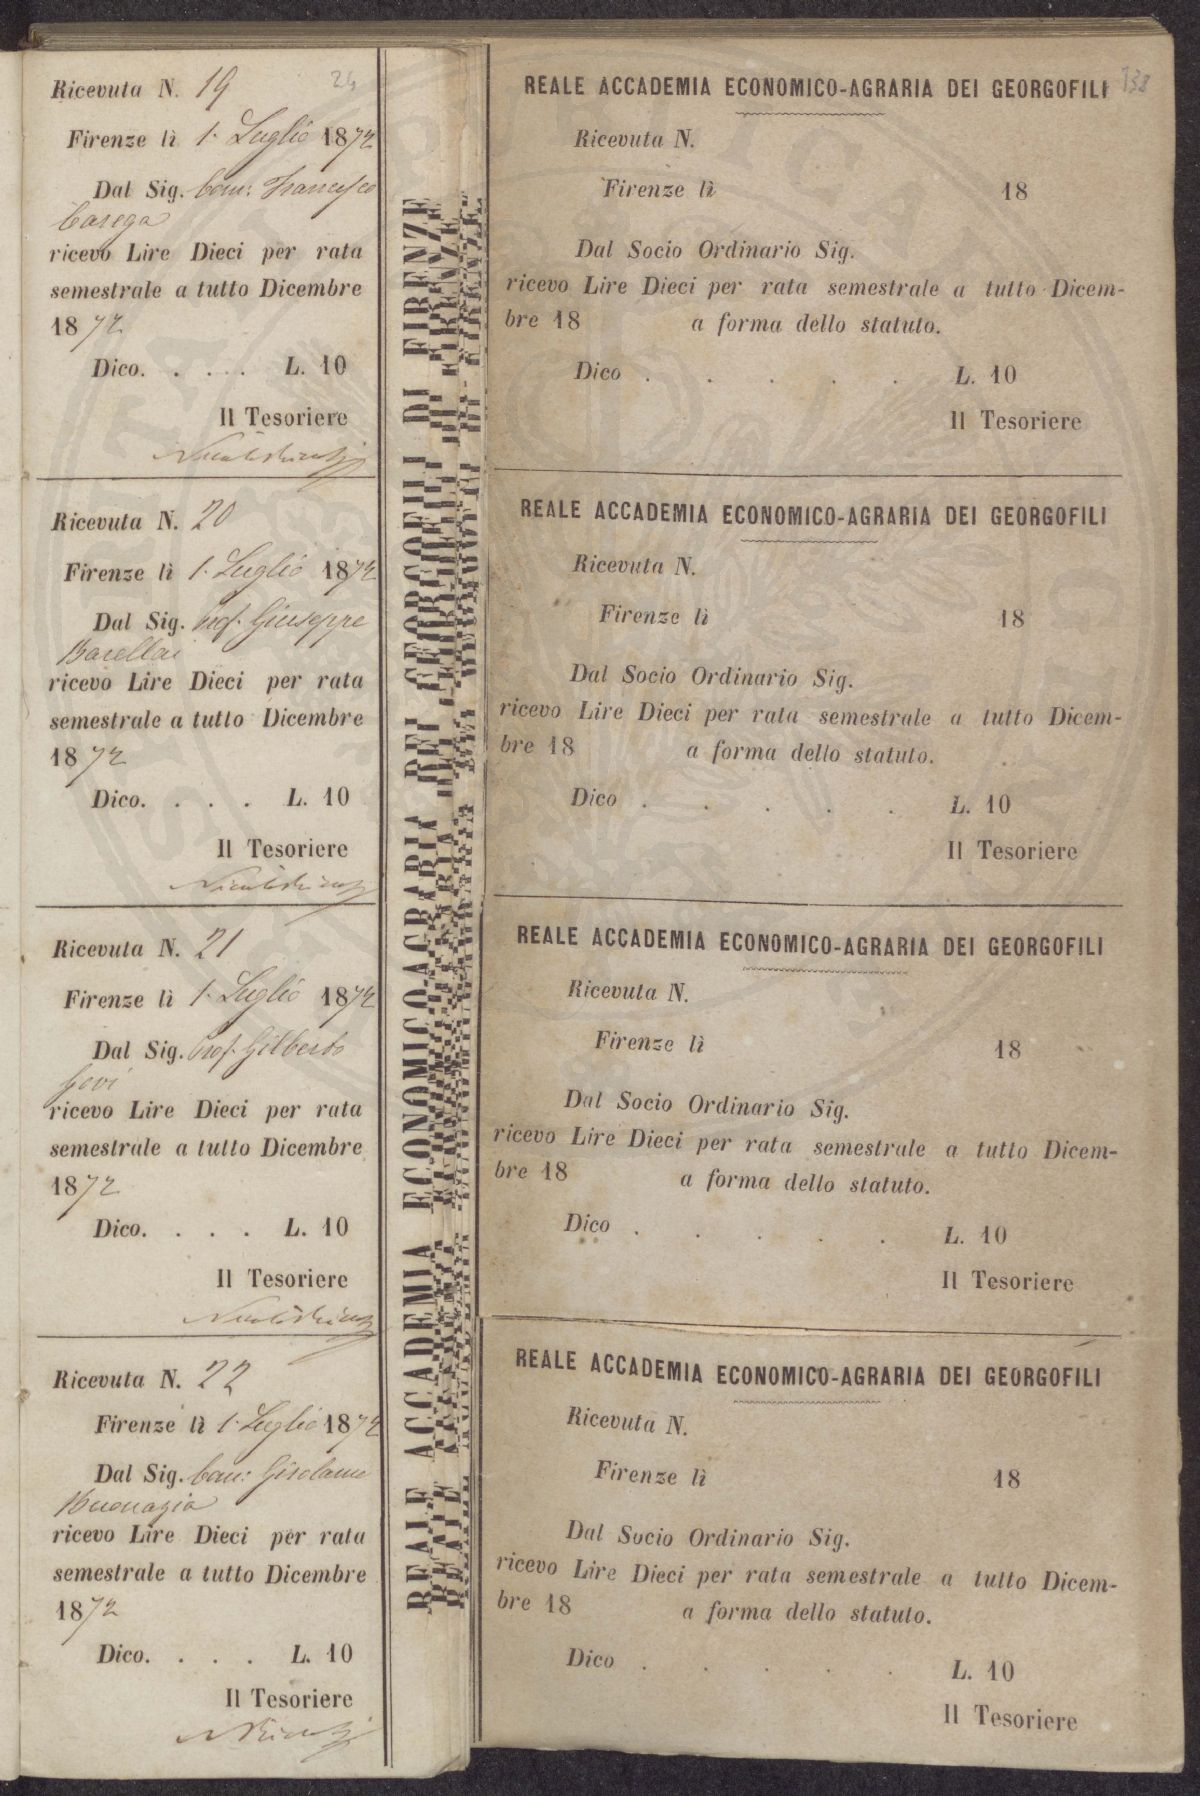 Ricevuta N. 19
24
Firenze lì 1. Luglio 1872
Dal Sig. Cav: Francesco
Carega
ricevo Lire Dieci per rata
semestrale a tutto Dicembre
1872
Dico. . . . . L. 10
Il Tesoriere
Ricevuta N. 20
Firenze lì 1. Luglio 1872
Dal Sig. Prof. Giuseppe
Barellai
ricevo Lire Dieci per rata
semestrale a tutto Dicembre
1872
Dico. . . . L. 10
Il Tesoriere
Ricevuta N. 21
Firenze lì 1. Luglio 1872
Dal Sig. Prof. Gilberto
Govi
ricevo Lire Dieci per rata
semestrale a tutto Dicembre
1872
Dico. . . . L. 10
Il Tesoriere
Ricevuta N. 22
Firenze lì 1. Luglio 1872
Dal Sig. Cav: Girolamo
Buonazia
ricevo Lire Dieci per rata
semestrale a tutto Dicembre
1872
Dico. . . . L. 10
Il Tesoriere
REALE ACCADEMIA ECONOMICO-AGRARIA DEI GEORGOFILI DI FIRENZE
REALE ACCADEMIA ECONOMICO-AGRARIA DEI GEORGOFILI
138
Ricevuta N.
Firenze lì 18
Dal Socio Ordinario Sig.
ricevo Lire Dieci per rata semestrale a tutto Dicem-
bre 18 a forma dello statuto.
Dico . . . . . L. 10
Il Tesoriere
REALE ACCADEMIA ECONOMICO-AGRARIA DEI GEORGOFILI
Ricevuta N.
Firenze lì 18
Dal Socio Ordinario Sig.
ricevo Lire Dieci per rata semestrale a tutto Dicem-
bre 18 a forma dello statuto.
Dico . . . . . L. 10
Il Tesoriere
REALE ACCADEMIA ECONOMICO-AGRARIA DEI GEORGOFILI
Ricevuta N.
Firenze lì 18
Dal Socio Ordinario Sig.
ricevo Lire Dieci per rata semestrale a tutto Dicem-
bre 18 a forma dello statuto.
Dico . . . . . L. 10
Il Tesoriere
REALE ACCADEMIA ECONOMICO-AGRARIA DEI GEORGOFILI
Ricevuta N.
Firenze lì 18
Dal Socio Ordinario Sig.
ricevo Lire Dieci per rata semestrale a tutto Dicem-
bre 18 a forma dello statuto.
Dico . . . . . L. 10
Il Tesoriere